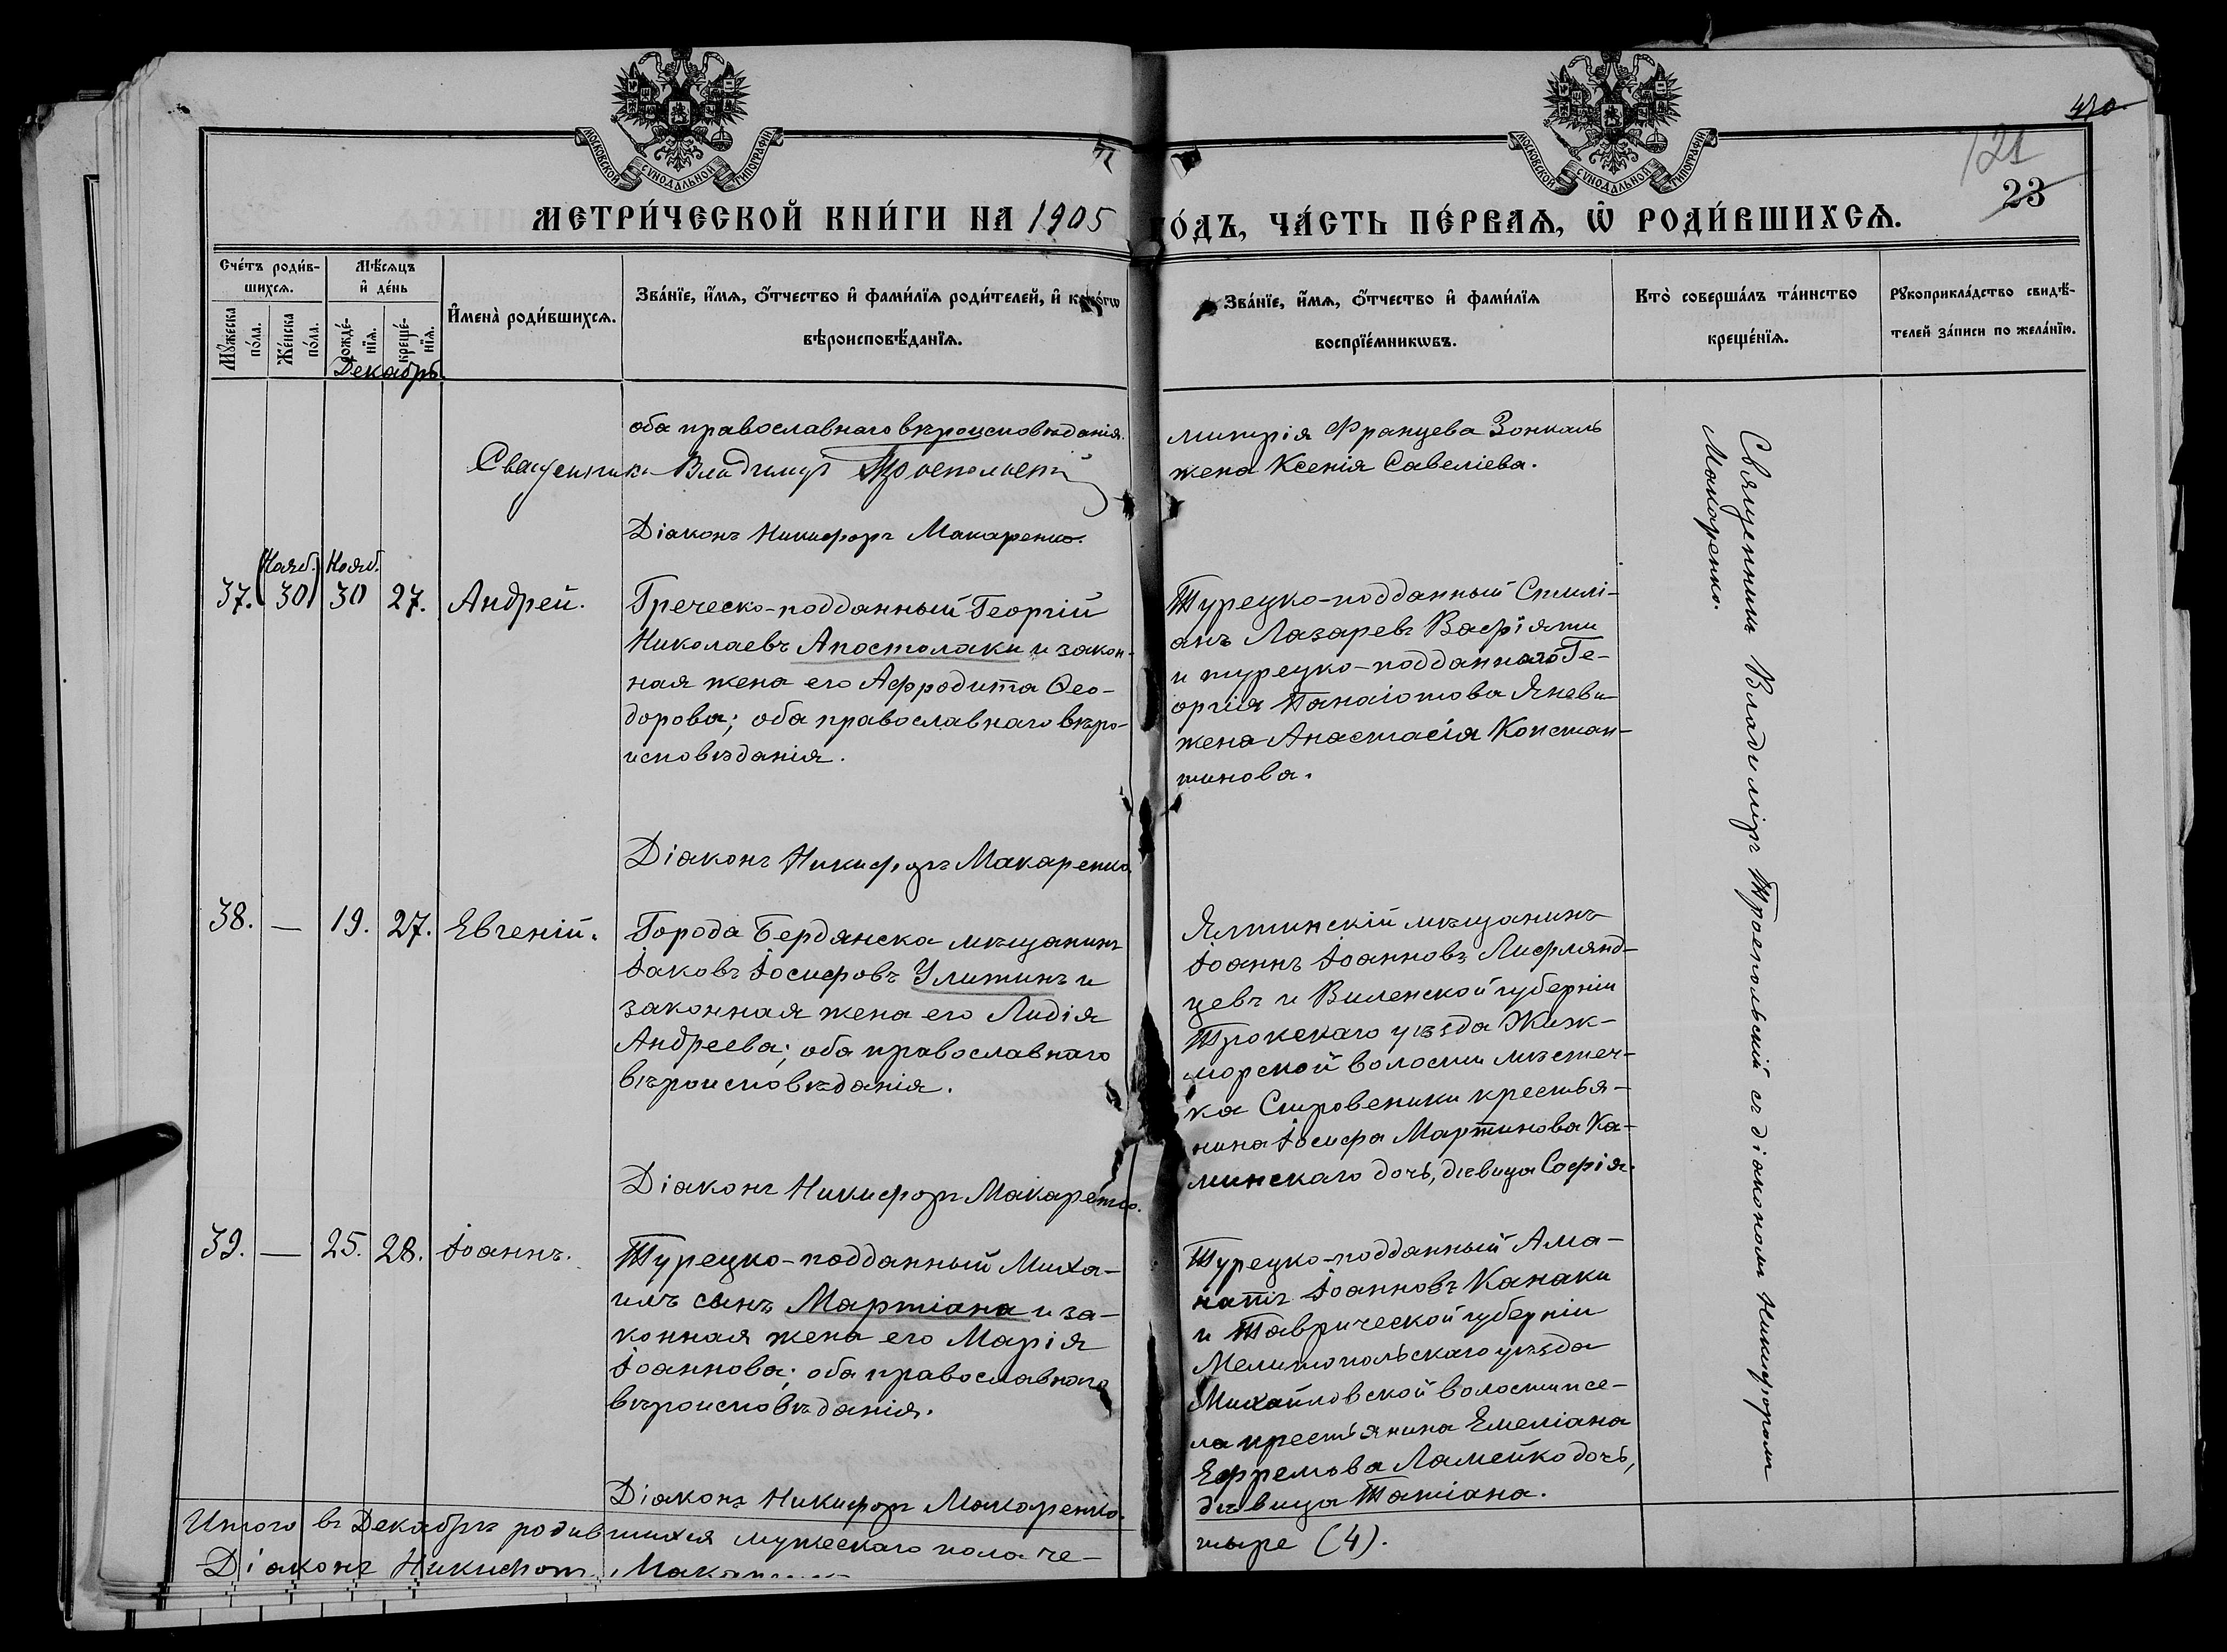 470
121
23
МОСКОВСКОЙ СУНОДАЛЬНОЙ ТИПОГРАФІИ
МОСКОВСКОЙ СУНОДАЛЬНОЙ ТИПОГРАФІИ
МЕТРИ́ЧЕСКОЙ КНИ́ГИ НА 1905
ГО́ДЪ, ЧА́СТЬ ПЕ́РВАѦ, Ѡ҆ РОДИ́ВШИХСѦ.
Сче́тъ роди́в-
шихсѧ.
Мꙋ́жеска по́ла.
Же́нска по́ла.
Мѣ́сѧцъ
и҆ де́нь
рожде́-
нїѧ.
креще́-
нїѧ.
Декабрь.
И҆мена̀ роди́вшихсѧ.
Зва́нїе, и҆́мѧ, ѻ҆́тчество и҆ фами́лїѧ роди́телей, и҆ кото́рагѡ
вѣроисповѣ́данїѧ.
Зва́нїе, и҆́мѧ, ѻ҆́тчество и҆ фами́лїѧ
воспрїе́мникѡвъ.
Кто̀ соверша́лъ та́инство
креще́нїѧ.
Рꙋкоприкла́дство свидѣ́-
телей за́писи по жела́нїю.
оба православнаго вѣроисповѣданія.
Священникъ Владиміръ Троепольскій
Діаконъ Никифоръ Макаренко.
митрія Францева Зонкаль
жена Ксенія Савеліева.
Священникъ Владиміръ Троепольскій съ діакономъ Никифоромъ
Макаренко.
Нояб. Нояб.
37. (30) 30 27. Андрей.
Греческо-подданный Георгій
Николаевъ Апостолаки и закон-
ная жена его Афродита Ѳео-
дорова; оба православнаго вѣро-
исповѣданія.
Діаконъ Никифоръ Макаренко
Турецко-подданный Стилі-
анъ Лазаревъ Вафіяти
и турецко-подданнаго Ге-
оргія Панаіотова Яневи
жена Анастасія Констан-
тинова.
38. — 19. 27. Евгеній.
Города Бердянска мѣщанинъ
Іаковъ Іосифовъ Улитинъ и
законная жена его Лидія
Андреева; оба православнаго
вѣроисповѣданія.
Діаконъ Никифоръ Макаренко.
Ялтинскій мѣщанинъ
Іоаннъ Іоанновъ Лифлянд-
цевъ и Виленской губерніи
Трокскаго уѣзда Жиж-
морской волости мѣстеч-
ка Стровеники крестья-
нина Іосифа Мартинова Ка-
минскаго дочь, дѣвица Софія.
39. — 25. 28. Іоаннъ.
Турецко-подданный Миха-
илъ сынъ Мартіана и за-
конная жена его Марія
Іоаннова; оба православнаго
вѣроисповѣданія.
Діаконъ Никифоръ Макаренко.
Турецко-подданный Ама-
натій Іоанновъ Канаки
и Таврической губерніи
Мелитопольскаго уѣзда
Михайловской волости и се-
ла крестьянина Емеліана
Ефремова Ламейко дочь,
дѣвица Татіана.
Итого въ Декабрѣ родившихся мужескаго пола че-
тыре (4).
Діаконъ Никифоръ Макаренко